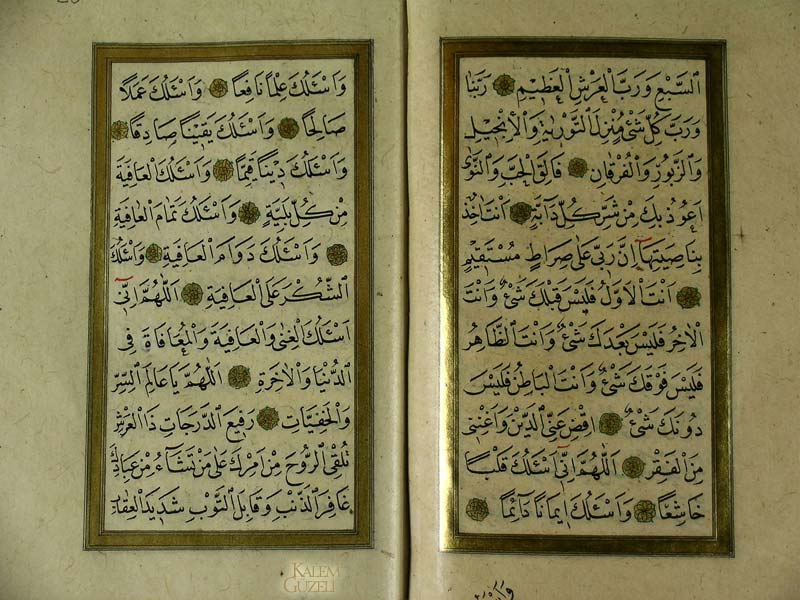 السَّبْعِ وَرَبَّ الْعَرْشِ الْعَظِيمِ رَبَّنَا
وَرَبَّ كُلِّ شَيْءٍ مُنْزِلَ التَّوْرٰيةِ وَالْاِنْجِيلِ
وَالزَّبُورِ وَالْفُرْقَانِ فَالِقَ الْحَبِّ وَالنَّوٰى
اَعُوذُ بِكَ مِنْ شَرِّ كُلِّ دَٓابَّةٍ اَنْتَ اٰخِذٌ
بِنَاصِيَتِهَا اِنَّ رَبِّي عَلٰى صِرَاطٍ مُسْتَقِيمٍ
اَنْتَ الْاَوَّلُ فَلَيْسَ قَبْلَكَ شَيْءٌ وَاَنْتَ
الْاٰخِرُ فَلَيْسَ بَعْدَكَ شَيْءٌ وَاَنْتَ الظَّاهِرُ
فَلَيْسَ فَوْقَكَ شَيْءٌ وَاَنْتَ الْبَاطِنُ فَلَيْسَ
دُونَكَ شَيْءٌ اِقْضِ عَنِّي الدَّيْنَ وَاَغْنِنِي
مِنَ الْفَقْرِ اَللّٰهُمَّ اِنِّٓي اَسْئَلُكَ قَلْبًا
خَاشِعًا وَاَسْئَلُكَ اِيمَانًا دَٓائِمًا
وَاَسْئَلُكَ عِلْمًا نَافِعًا وَاَسْئَلُكَ عَمَلًا
صَالِحًا وَاَسْئَلُكَ يَقِينًا صَادِقًا
وَاَسْئَلُكَ دِينًا قَيِّمًا وَاَسْئَلُكَ الْعَافِيَةَ
مِنْ كُلِّ بَلِيَّةٍ وَاَسْئَلُكَ تَمَامَ الْعَافِيَةِ
وَاَسْئَلُكَ دَوَامَ الْعَافِيَةِ وَاَسْئَلُكَ
الشُّكْرَ عَلَى الْعَافِيَةِ اَللّٰهُمَّ اِنِّٓي
اَسْئَلُكَ الْغِنٰى وَالْعَافِيَةَ وَالْمُعَافَاةَ فِي
الدُّنْيَا وَالْاٰخِرَةِ اَللّٰهُمَّ يَا عَالِمَ السِّرِّ
وَالْخَفِيَّاتِ رَفِيعَ الدَّرَجَاتِ ذَا الْعَرْشِ
تُلْقِي الرُّوحَ مِنْ اَمْرِكَ عَلٰى مَنْ تَشَٓاءُ مِنْ عِبَادِكَ
غَافِرَ الذَّنْبِ وَقَابِلَ التَّوْبِ شَدِيدَ الْعِقَابِ
KALEM
GÜZELİ